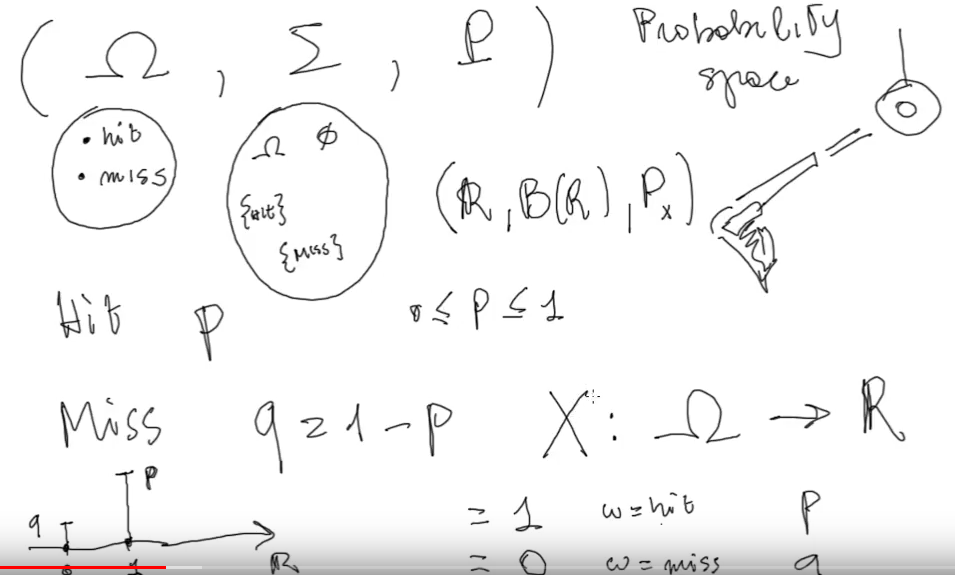 ( Ω , Σ , P ) Probability space
• hit
• miss
Ω ∅
{Hit}
{Miss}
(ℝ, B(ℝ), Pₓ)
Hit p 0 ≤ p ≤ 1
Miss q = 1 - p X : Ω → ℝ
q p
0 1 ℝ
= 1 ω = hit p
= 0 ω = miss q